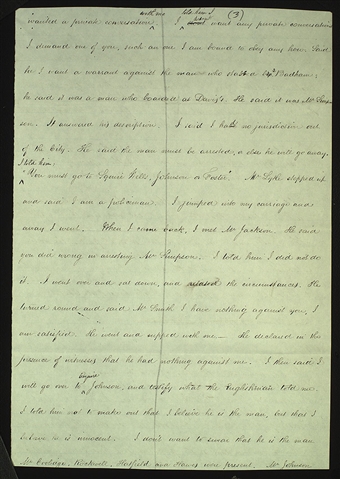 with me told him I (3)
wanted a private conversation. I want any private conversation
I demand one of you, such an one I am bound to obey any how. Said
he I want a warrant against the man who stabbed Mr Badham;
he said it was a man who boarded at Davis's. He said it was Mr Simp-
son. It answered his description. I said I had no jurisdiction out
of the City. He said the man must be arrested, or else he will go away.
I told him
"You must go to Squire Wells, Johnson or Foster". Mr Lytle stepped up
and said I am a policeman. I jumped into my carriage and
away I went. When I came back, I met Mr Jackson. He said
you did wrong in arresting Mr Simpson. I told him I did not do
it. I went over and sat down, and related the circumstances. He
turned round and said Mr Smith I have nothing against you, I
am satisfied. He went and supped with me — he declared in the
presence of witnesses that he had nothing against me. I then said I
will go over to Squire Johnson, and testify what the Englishman told me.
I told him not to make out that I believe he is the man, but that I
believe he is innocent. I don't want to swear that he is the man.
Mr Coolidge, Rockwell, Hatfield and Hawes were present. Mr Johnson